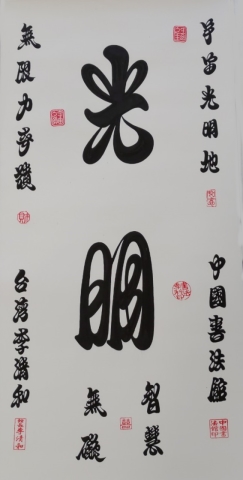 宇宙光明地
中國書法館
光明
智慧
無礙
無限力奇蹟
台灣李清和